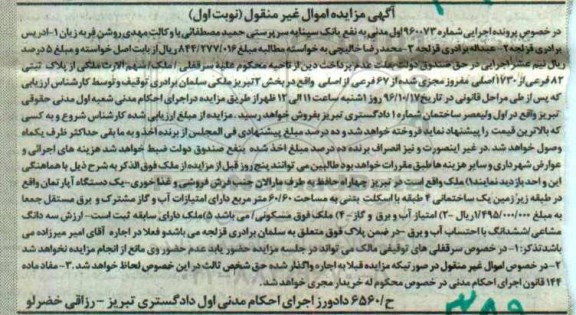 آگهی مزایده اموال غیر منقول (نوبت اول)
در خصوص پرونده اجرایی شماره ۹۶۰۰۷۳ اول مدنی به نفع بانک سپه به سرپرستی حمید مصطفائی با وکالت مهدی روشن فر به زیان ۱-ادریس
برادری قزلجه ۲-عبداله برادری قزلجه ۳-محمدرضا خالیجی به خواسته مطالبه مبلغ ۸۴۴/۲۷۷/۰۱۶ ریال از بابت اصل خواسته و مبلغ ۵ درصد
ریال نیم عشر اجرایی در حق صندوق دولت بعلت عدم پرداخت دین از ناحیه محکوم علیه سرقفلی / ملک/ سهم الارث ملکی از پلاک ثبتی
۸۲ فرعی از ۱۱۷۳۰ اصلی مفروز مجزی شده از ۶۷ فرعی از اصلی واقع در بخش ۳ تبریز ملکی سلمان برادری توقیف و توسط کارشناس ارزیابی
که پس از طی مراحل قانونی در تاریخ ۹۶/۱۰/۱۷ روز ۱شنبه ساعت ۱۱ الی ۱۲ ظهر از طریق مزایده در اجرای احکام مدنی شعبه اول مدنی حقوقی
تبریز واقع در اول ولیعصر ساختمان شماره ۱ دادگستری تبریز بفروش خواهد رسید. مزایده از مبلغ ارزیابی شده کارشناس شروع و به کسی
که بالاترین قیمت را پیشنهاد نماید فروخته خواهد شد و ده درصد مبلغ پیشنهادی فی المجلس از برنده اخذ و به ما بقی حداکثر ظرف یکماه
وصول خواهد شد. در غیر اینصورت و نیز انصراف برنده ده درصد مبلغ اخذ شده بنفع صندوق دولت ضبط خواهد شد هزینه های اجرائی و
عوارض شهرداری و سایر هزینه ها طبق مقررات خواهد بود طالبین می توانند پنج روز قبل از مزایده از ملک فوق الذکر به شرح ذیل با هماهنگی
این واحد بازدید نمایند ۱) ملک واقع است در تبریز چهارراه حافظ به طرف مارالان جنب فرش فروشی و غذاخوری-یک دستگاه آپارتمان واقع
در طبقه زیرزمین یک ساختمانی ۴ طبقه با اسکلت بتنی به مساحت ۶۰/۶۰ متر مربع دارای امتیازات آب و گاز مشترک و برق مستقل جمعا
به مبلغ ۱/۴۹۵/۰۰۰/۰۰۰ ریال ۲-) امتیاز آب و برق و گاز ۴-) ملک فوق مسکونی/ می باشد ۵) ملک دارای سابقه ثبت است- ارزش سه دانگ
مشاعی/ششدانگ با احتساب آب و برق -در ضمن پلاک فوق متعلق به سلمان برادری قزلجه می باشد و فعلا در اجاره آقای امیر میرزاده می
باشد تذکر: ۱- در خصوص سرقفلی های توقیفی مالک می تواند در جلسه مزایده حضور یابد عدم حضور وی مانع از انجام مزایده نخواهد شد
۲-در خصوص اموال غیر منقول در صورتیکه مزایده قبلا به اجاره واگذار شده حق شخص ثالث در این خصوص لحاظ خواهد شد. ۳- مفاد ماده
۱۴۴ قانون اجرای احکام مدنی در خصوص محکوم له خریدار مجری خواهد شد.
ح/۶۵۶۰ دادورز اجرای احکام مدنی اول دادگستری تبریز – رزاقی خضرلو